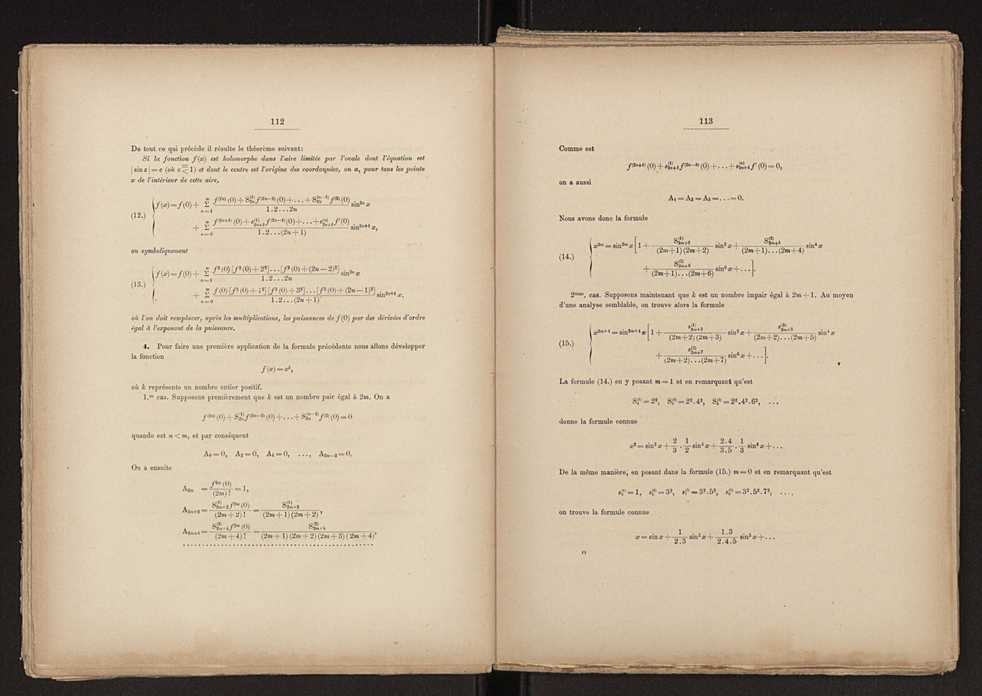 112
De tout ce qui précède il résulte le théorème suivant:
Si la fonction f(x) est holomorphe dans l'aire limitée par l'ovale dont l'équation est
| sin z | = c (où c ≦ 1) et dont le centre est l'origine des coordonnées, on a, pour tous les points
x de l'intérieur de cette aire,
(12.) f(x) = f(0) + Σ f^(2n)(0) + S f^(2n−2)(0) + ... + S f^(2)(0) / 1.2...2n sin^2n x
+ Σ f^(2n+1)(0) + s f^(2n−1)(0) + ... + s f'(0) / 1.2...(2n+1) sin^2n+1 x,
ou symboliquement
(13.) f(x) = f(0) + Σ f²(0) [f²(0) + 2²] ... [f²(0) + (2n−2)²] / 1.2...2n sin^2n x
+ Σ f(0) [f²(0) + 1²] [f²(0) + 3²] ... [f²(0) + (2n−1)²] / 1.2...(2n+1) sin^2n+1 x,
où l'on doit remplacer, après les multiplications, les puissances de f(0) par des dérivées d'ordre
égal à l'exposant de la puissance.
4. Pour faire une première application de la formule précédente nous allons développer
la fonction
f(x) = x^k,
où k représente un nombre entier positif.
1.er cas. Supposons premièrement que k est un nombre pair égal à 2m. On a
f^(2n)(0) + S f^(2n−2)(0) + ... + S f^(2)(0) = 0
quando est n < m, et par conséquent
A₀ = 0, A₂ = 0, A₄ = 0, ..., A₂ₘ₋₂ = 0.
On a ensuite
A₂ₘ = f^2m(0) / (2m)! = 1,
A₂ₘ₊₂ = S f^2m(0) / (2m+2)! = S / (2m+1)(2m+2),
A₂ₘ₊₄ = S f^2m(0) / (2m+4)! = S / (2m+1)(2m+2)(2m+3)(2m+4),
113
Comme est
f^(2n+1)(0) + s f^(2n−1)(0) + ... + s f'(0) = 0,
on a aussi
A₁ = A₃ = A₅ = ... = 0.
Nous avons donc la formule
(14.) x^2m = sin^2m x [1 + S / (2m+1)(2m+2) sin² x + S / (2m+1)...(2m+4) sin⁴ x
+ S / (2m+1)...(2m+6) sin⁶ x + ...].
2ème. cas. Supposons maintenant que k est un nombre impair égal à 2m+1. Au moyen
d'une analyse semblable, on trouve alors la formule
(15.) x^2m+1 = sin^2m+1 x [1 + s / (2m+2)(2m+3) sin² x + s / (2m+2)...(2m+5) sin⁴ x
+ s / (2m+2)...(2m+7) sin⁶ x + ...].
La formule (14.) en y posant m = 1 et en remarquant qu'est
S = 2², S = 2².4², S = 2².4².6², ...
donne la formule connue
x² = sin² x + 2/3 . 1/2 sin⁴ x + 2.4/3.5 . 1/3 sin⁶ x + ...
De la même manière, en posant dans la formule (15.) m = 0 et en remarquant qu'est
s = 1, s = 3², s = 3².5², s = 3².5².7², ...
on trouve la formule connue
x = sin x + 1/2.3 sin³ x + 1.3/2.4.5 sin⁵ x + ...